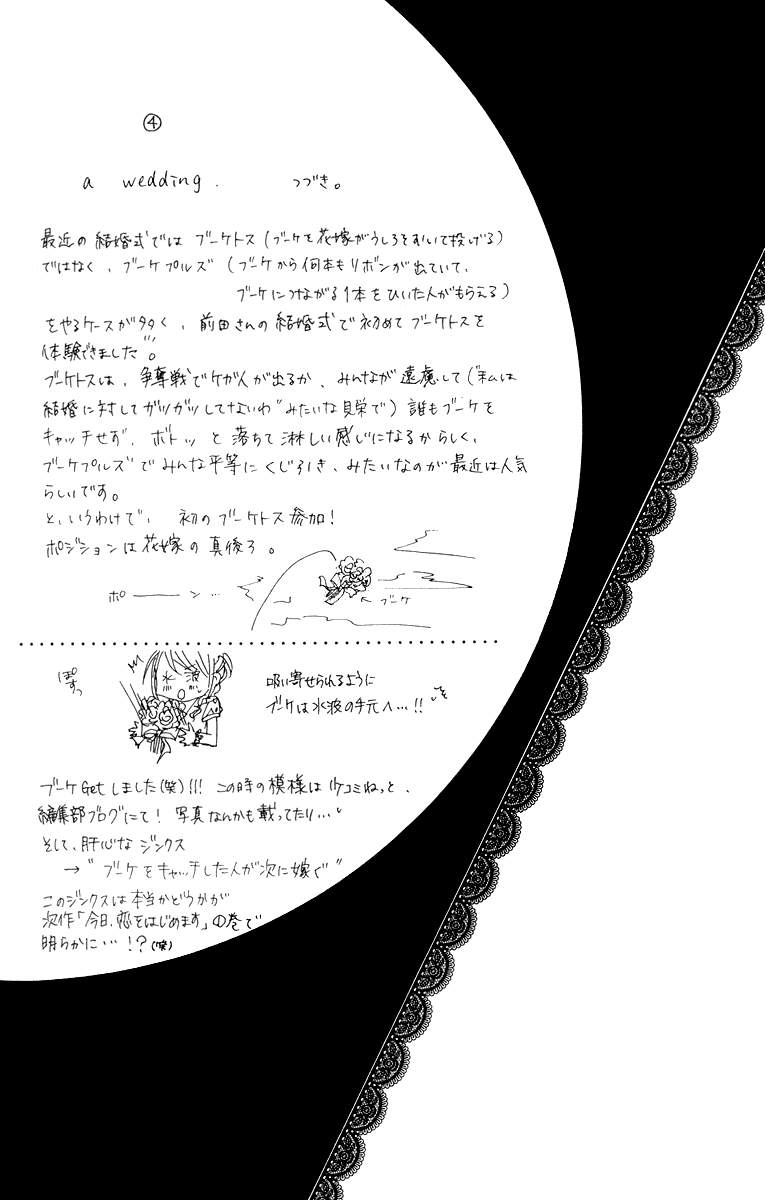 ④
a wedding. つづき。
最近の結婚式では ブーケトス（ブーケを花嫁がうしろをむいて投げる）
ではなく、ブーケプルズ（ブーケから何本もリボンが出ていて、
ブーケにつながる1本をひいた人がもらえる）
をやるケースが多く、前田さんの結婚式で初めてブーケトスを
体験できました。
ブーケトスは、争奪戦でケガ人が出るか、みんなが遠慮して（"私は
結婚に対してガツガツしてないわ"みたいな見栄で）誰もブーケを
キャッチせず、ボトッと落ちて淋しい感じになるからしく、
ブーケプルズでみんな平等にくじ引き、みたいなのが最近は人気
らしいです。
と、いうわけで、初のブーケトス参加！
ポジションは花嫁の真後ろ。
ポーーーン…
←ブーケ
ぽすっ
水波
吸い寄せられるように
ブーケは水波の手元へ…!!
ブーケGetしました(笑)!!! この時の模様はバケコミねっと、
編集部ブログにて！写真なんかも載ってたり…
そして、肝心なジンクス
→"ブーケをキャッチした人が次に嫁ぐ"
このジンクスは本当かどうかが
次作「今日、恋をはじめます」の巻で
明らかに…！？(笑)